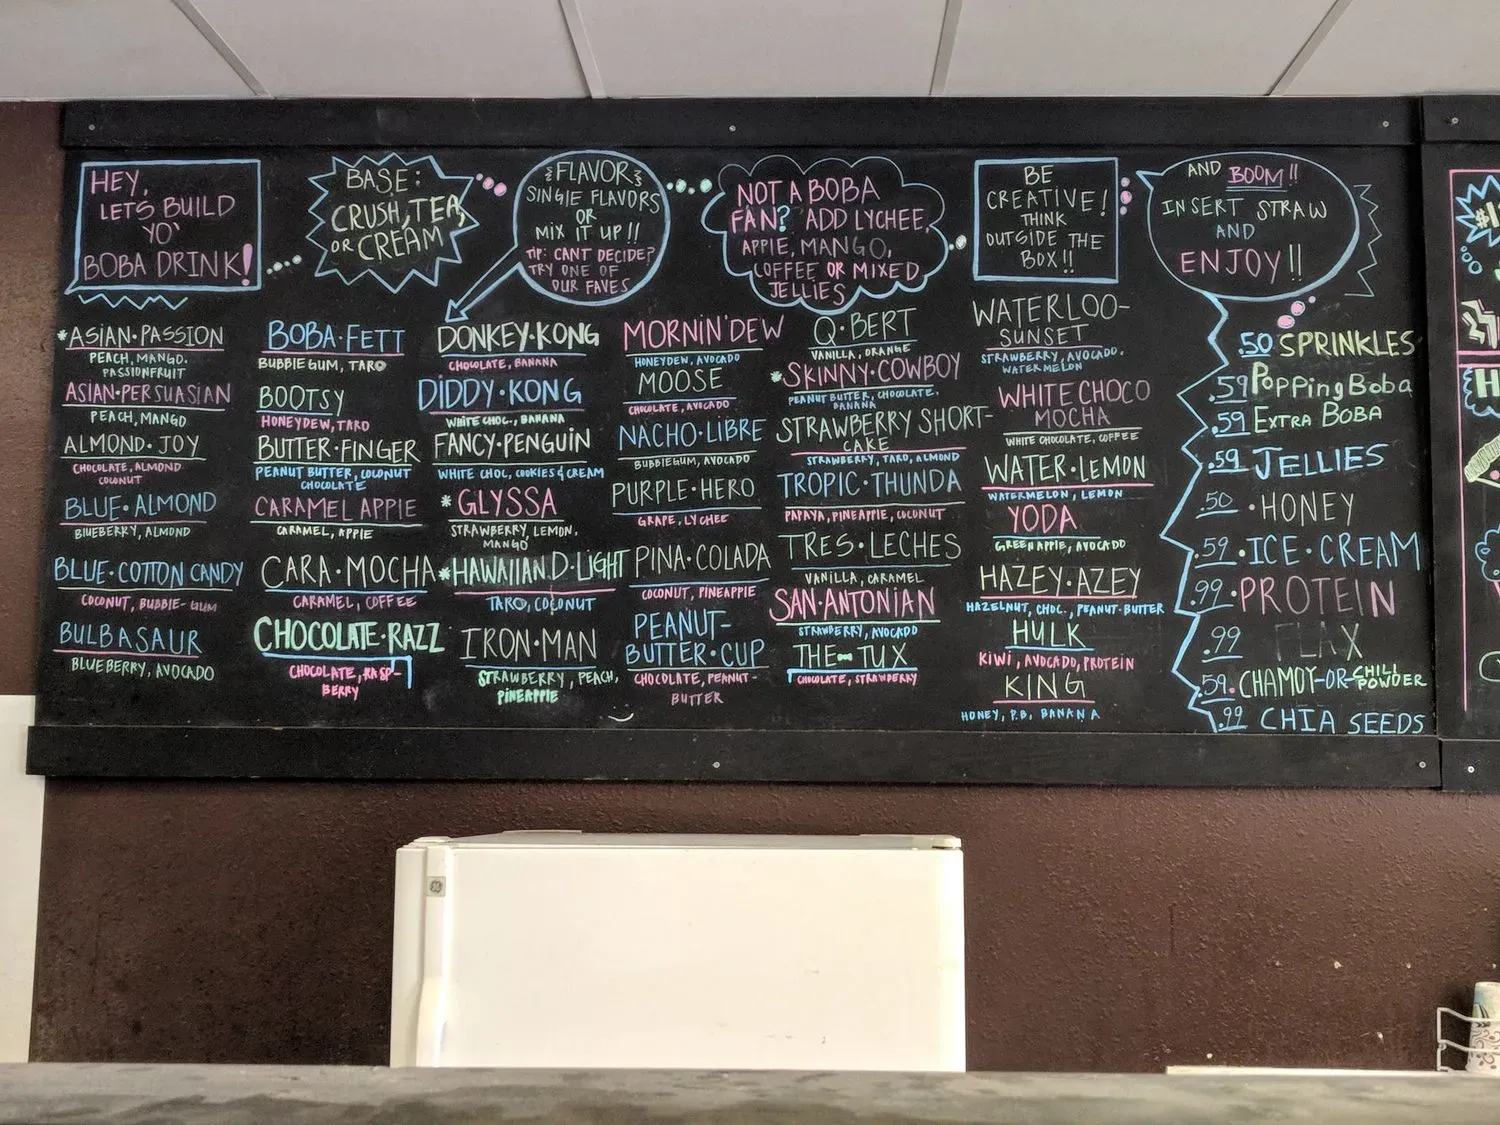 HEY,
LETS BUILD
YO'
BOBA DRINK!
BASE:
CRUSH, TEA,
OR CREAM
FLAVOR
SINGLE FLAVORS
OR
MIX IT UP!!
TIP: CANT DECIDE?
TRY ONE OF
OUR FAVES
NOT A BOBA
FAN? ADD LYCHEE,
APPLE, MANGO,
COFFEE OR MIXED
JELLIES
BE
CREATIVE!
THINK
OUTSIDE THE
BOX!!
AND BOOM!!
INSERT STRAW
AND
ENJOY!!
*ASIAN·PASSION
PEACH, MANGO,
PASSIONFRUIT
ASIAN·PERSUASIAN
PEACH, MANGO
ALMOND·JOY
CHOCOLATE, ALMOND
COCONUT
BLUE·ALMOND
BLUEBERRY, ALMOND
BLUE·COTTON CANDY
COCONUT, BUBBLE-GUM
BULBASAUR
BLUEBERRY, AVOCADO
BOBA·FETT
BUBBLEGUM, TARO
BOOTSY
HONEYDEW, TARO
BUTTER·FINGER
PEANUT BUTTER, COCONUT
CHOCOLATE
CARAMEL APPLE
CARAMEL, APPLE
CARA·MOCHA
CARAMEL, COFFEE
CHOCOLATE·RAZZ
CHOCOLATE, RASP-
BERRY
DONKEY·KONG
CHOCOLATE, BANANA
DIDDY·KONG
WHITE CHOC., BANANA
FANCY·PENGUIN
WHITE CHOC, COOKIES & CREAM
*GLYSSA
STRAWBERRY, LEMON,
MANGO
*HAWAIIAN·D·LIGHT
TARO, COCONUT
IRON·MAN
STRAWBERRY, PEACH,
PINEAPPLE
MORNIN'DEW
HONEYDEW, AVOCADO
MOOSE
CHOCOLATE, AVOCADO
NACHO·LIBRE
BUBBLEGUM, AVOCADO
PURPLE·HERO
GRAPE, LYCHEE
PINA·COLADA
COCONUT, PINEAPPLE
PEANUT-
BUTTER·CUP
CHOCOLATE, PEANUT-
BUTTER
Q·BERT
VANILLA, ORANGE
*SKINNY·COWBOY
PEANUT BUTTER, CHOCOLATE,
BANANA
STRAWBERRY SHORT-
CAKE
STRAWBERRY, TARO, ALMOND
TROPIC·THUNDA
PAPAYA, PINEAPPLE, COCONUT
TRES·LECHES
VANILLA, CARAMEL
SAN·ANTONIAN
STRAWBERRY, AVOCADO
THE-TUX
CHOCOLATE, STRAWBERRY
WATERLOO-
SUNSET
STRAWBERRY, AVOCADO,
WATERMELON
WHITE CHOCO
MOCHA
WHITE CHOCOLATE, COFFEE
WATER·LEMON
WATERMELON, LEMON
YODA
GREEN APPLE, AVOCADO
HAZEY·AZEY
HAZELNUT, CHOC., PEANUT-BUTTER
HULK
KIWI, AVOCADO, PROTEIN
KING
HONEY, P.B, BANANA
.50 SPRINKLES
.59 POPPING BOBA
.59 EXTRA BOBA
.59 JELLIES
.50 ·HONEY
.59 ·ICE·CREAM
.99 ·PROTEIN
.99 FLAX
.59·CHAMOY-OR-CHILI
POWDER
.99 CHIA SEEDS